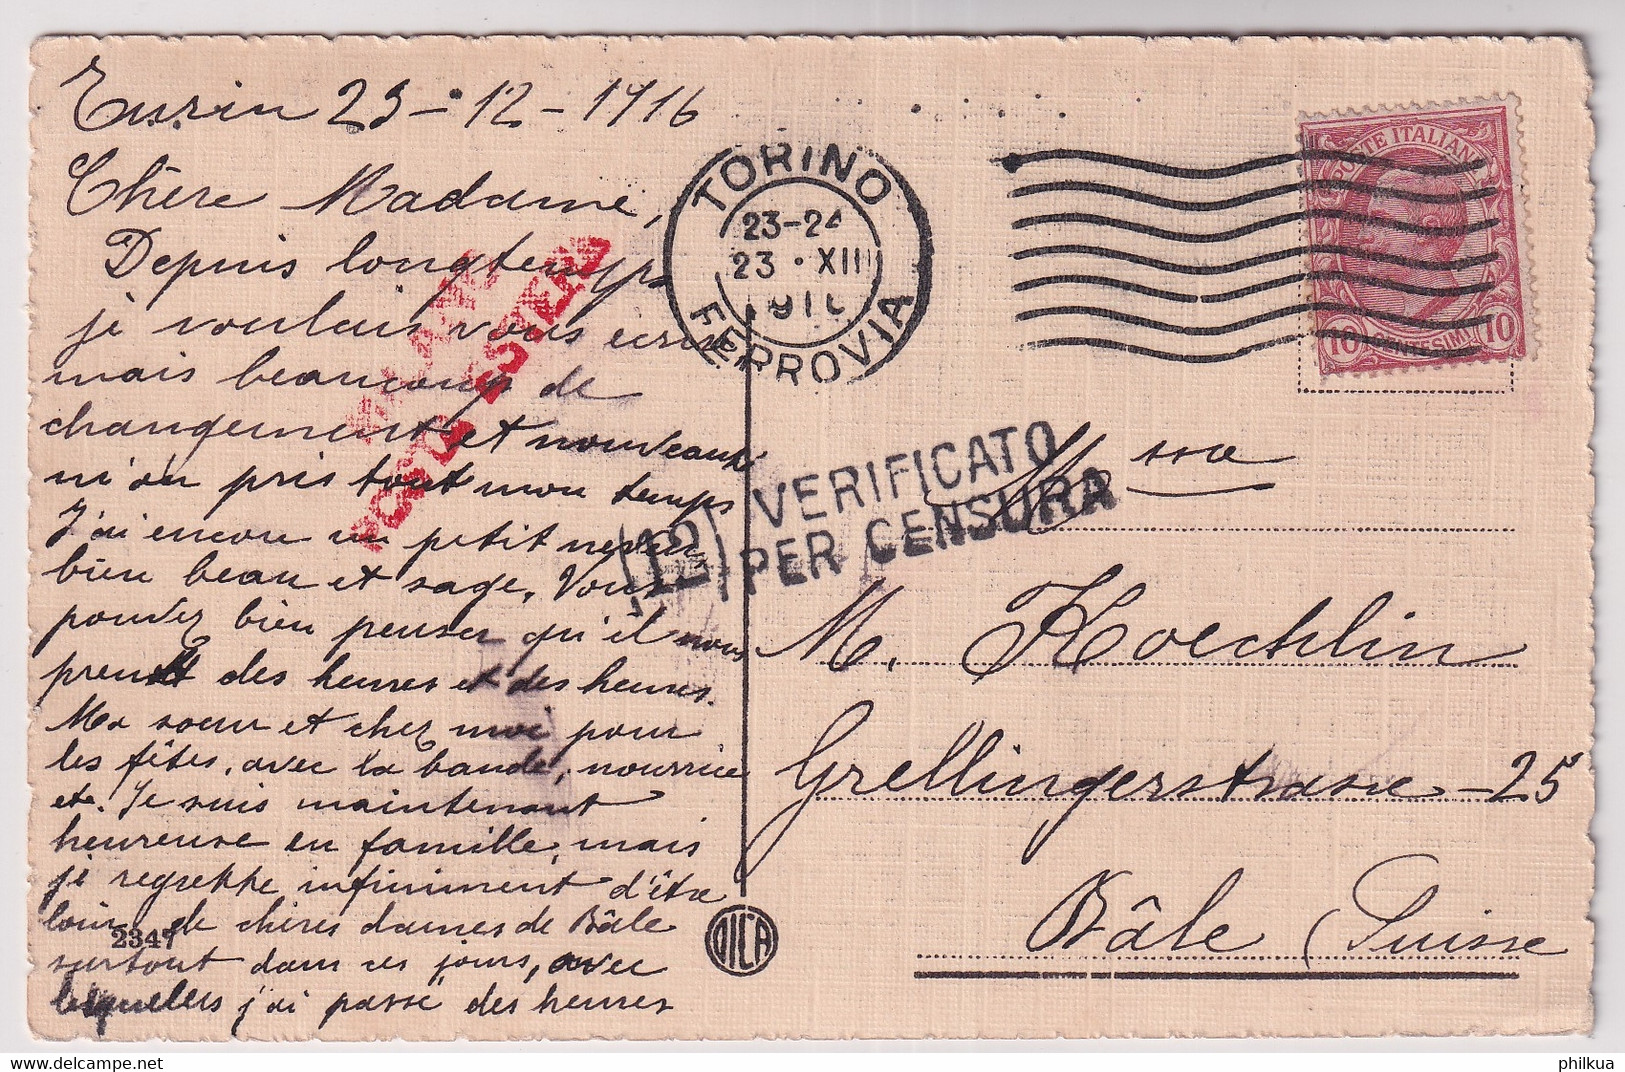 Turin 23-12-1916
Chère Madame,
Depuis longtemps
je voulais vous ecrire
mais beaucoup de
changement et nouveauté
m'ön pris tout mon temps
J'ai encore un petit neveu
bien beau et sage. Vous
pouvez bien penser qu'il nous
prend des heures et des heures.
Ma soeur et chez moi pour
les fêtes, avec la bande, nourrice
et. Je suis maintenant
heureuse en famille, mais
je regrette infiniment d'être
loin de chères dames de Bâle
surtout dans ces jours, avec
lesquelles j'ai passé des heures
2347
POSTA ESTERA
TORINO
23-24
23·XII
191
FERROVIA
POSTE ITALIANE
10 CENTESIMI 10
(12) VERIFICATO
PER CENSURA
M.
M. Koechlin
Grellingerstrasse-25
Bâle (Suisse
DICA
philkua